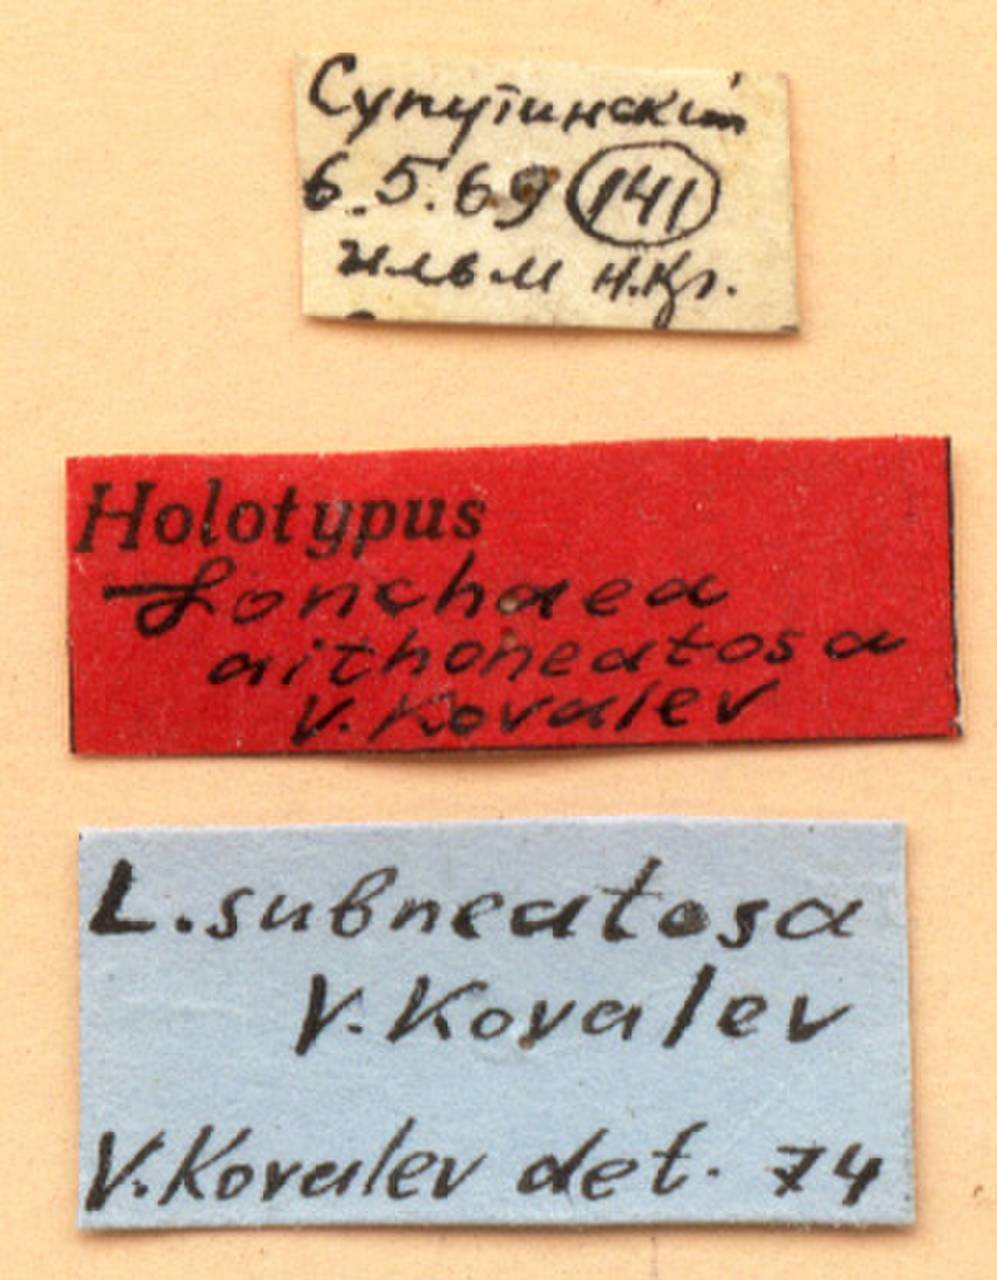 Супутинский
6.5.69 141
ильм Н.Кр.
Holotypus
Lonchaea
aithoneatosa
V. Kovalev
L. subneatosa
V. Kovalev
V. Kovalev det. 74